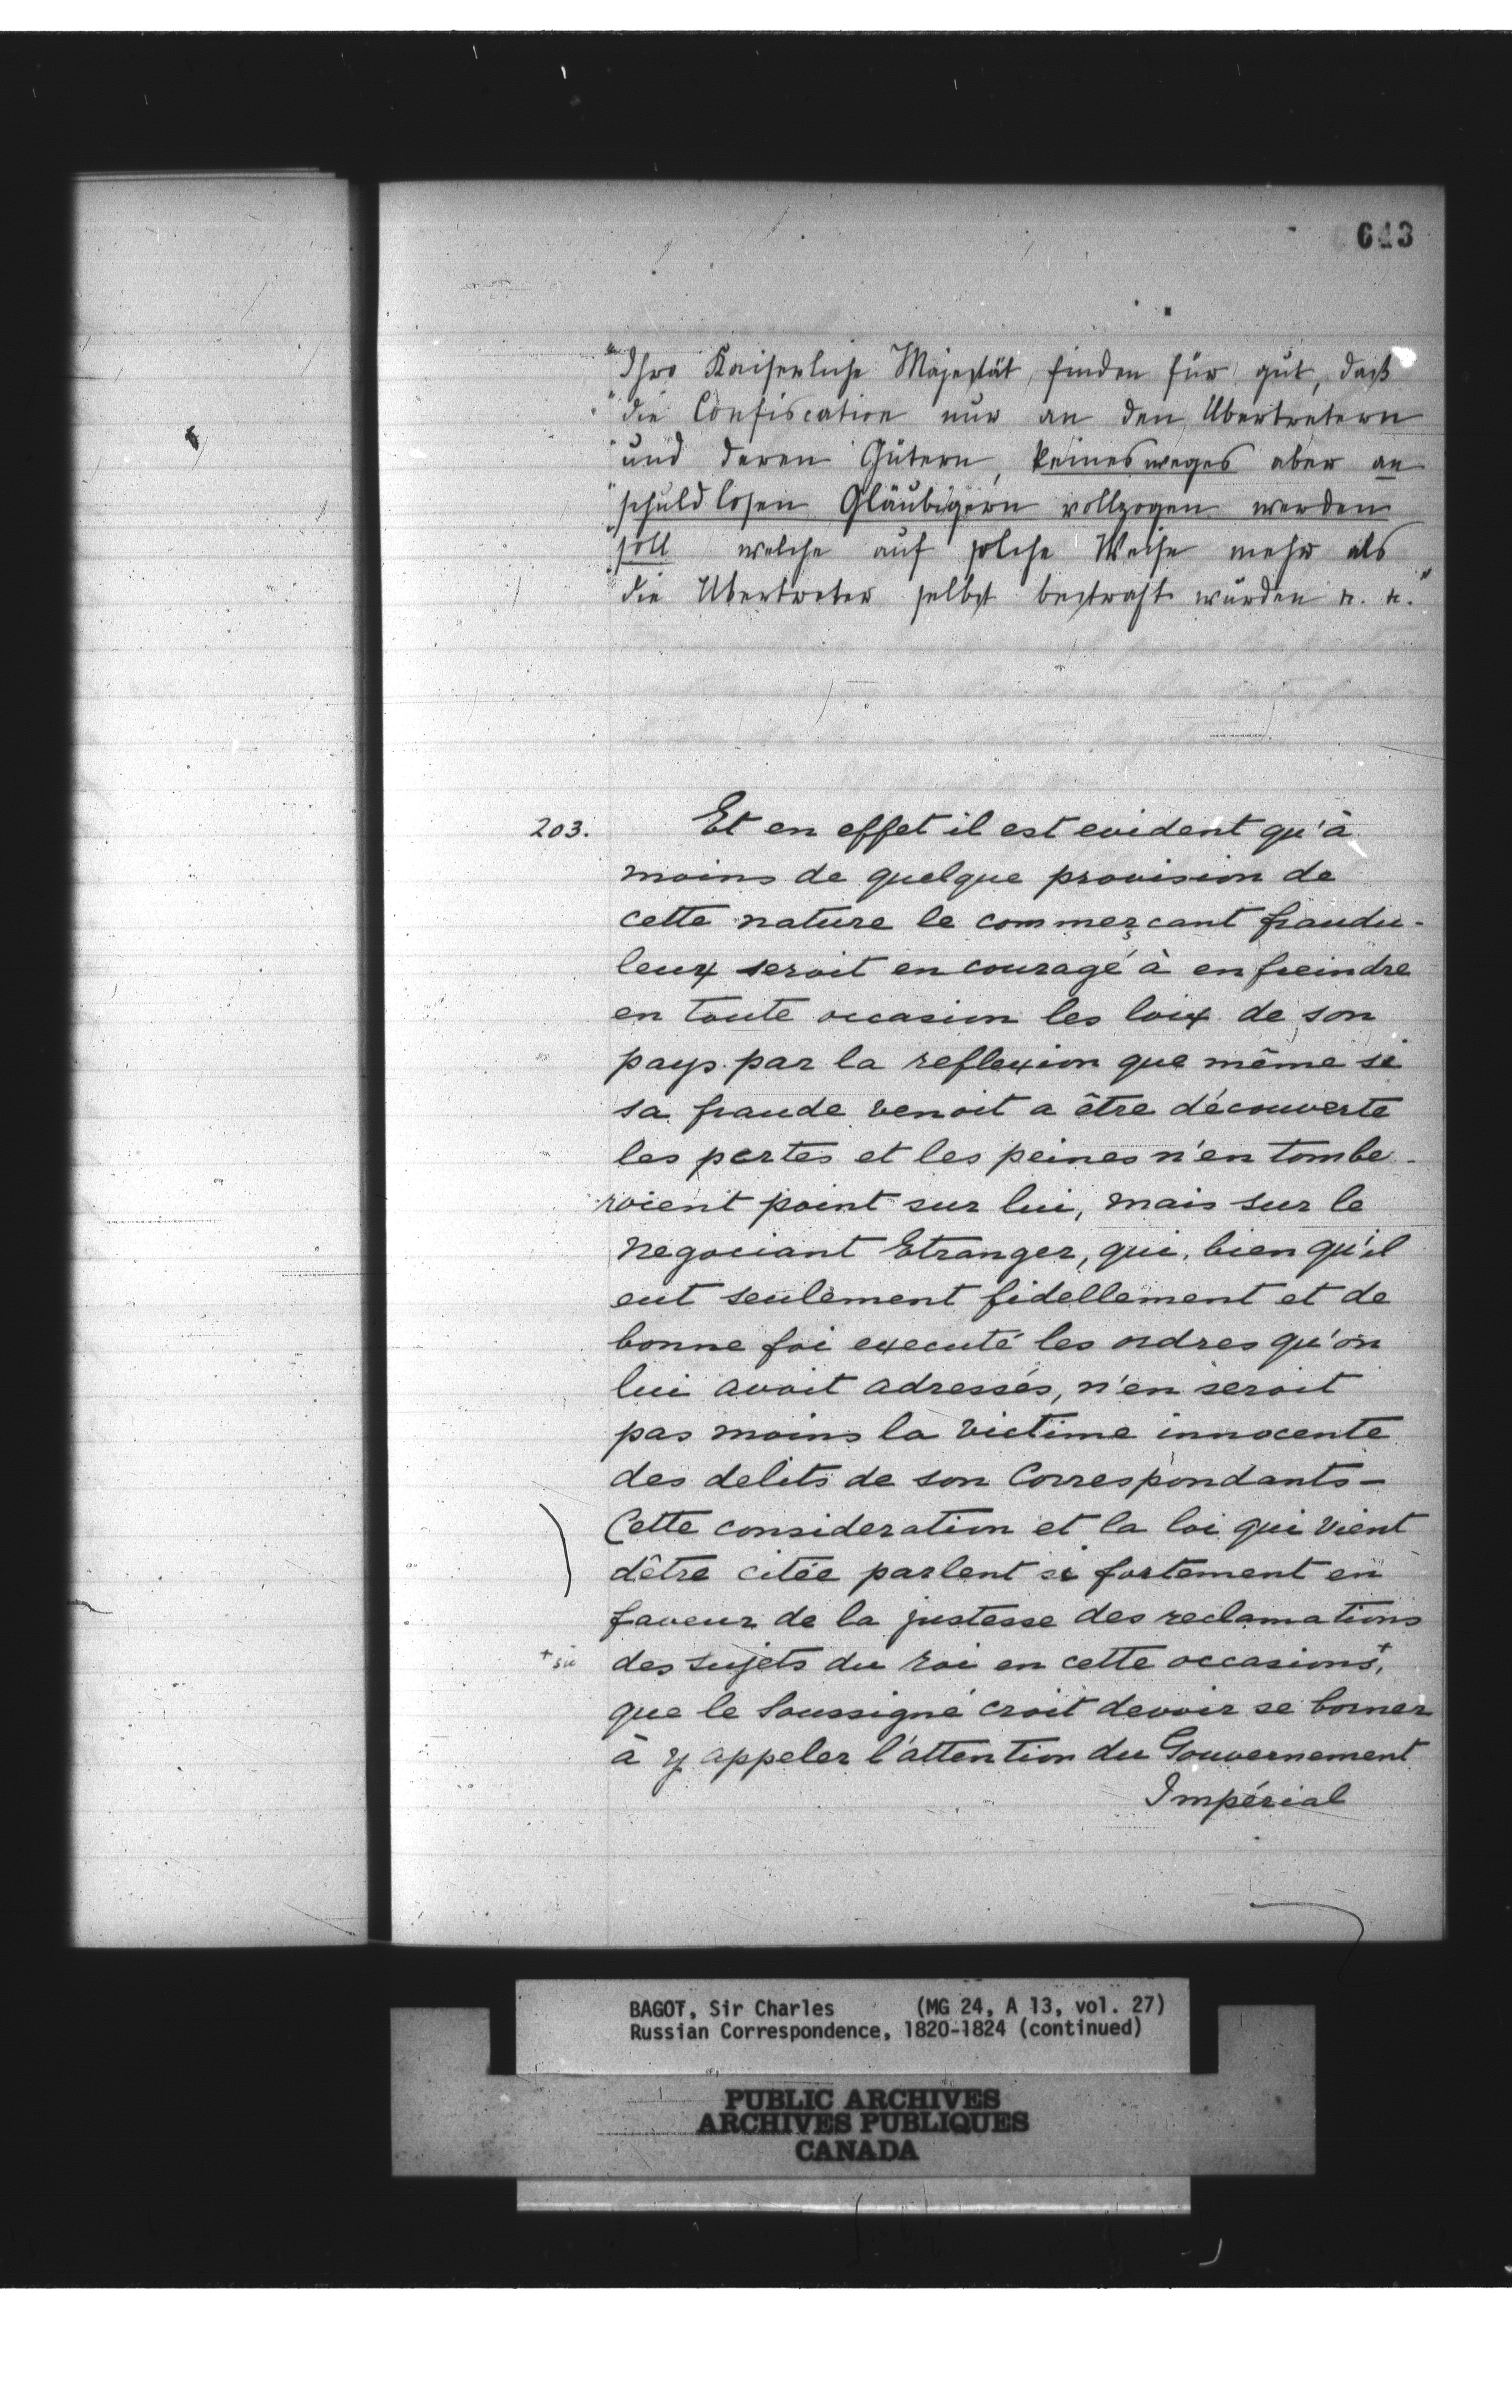 643
"Ihro Kaiserliche Majestät finden für gut, daß
"die Confiscation nur an den Übertretern
"und deren Gütern, keinesweges aber an
"schuldlosen Gläubigern vollzogen werden
"soll welche auf solche Weise mehr als
"die Übertreter selbst bestraft würden &c. &c."
203. Et en effet il est evident qu'à
moins de quelque provision de
cette nature le commerçant fraudu-
leux seroit encouragé à enfreindre
en toute occasion les loix de son
pays par la reflexion que même si
sa fraude venoit a être découverte
les pertes et les peines n'en tombe-
roient point sur lui, mais sur le
Negociant Etranger, qui, bien qu'il
eut seulement fidellement et de
bonne foi executé les ordres qu'on
lui avoit adressés, n'en seroit
pas moins la victime innocente
des delits de son Correspondants—
Cette consideration et la loi qui vient
dêtre citée parlent si fortement en
faveur de la justesse des reclamations
+ sic des sujets du roi en cette occasions+,
que le Soussigné croit devoir se borner
à y appeler l'attention du Gouvernement
Impérial
BAGOT, Sir Charles (MG 24, A 13, vol. 27)
Russian Correspondence, 1820-1824 (continued)
PUBLIC ARCHIVES
ARCHIVES PUBLIQUES
CANADA